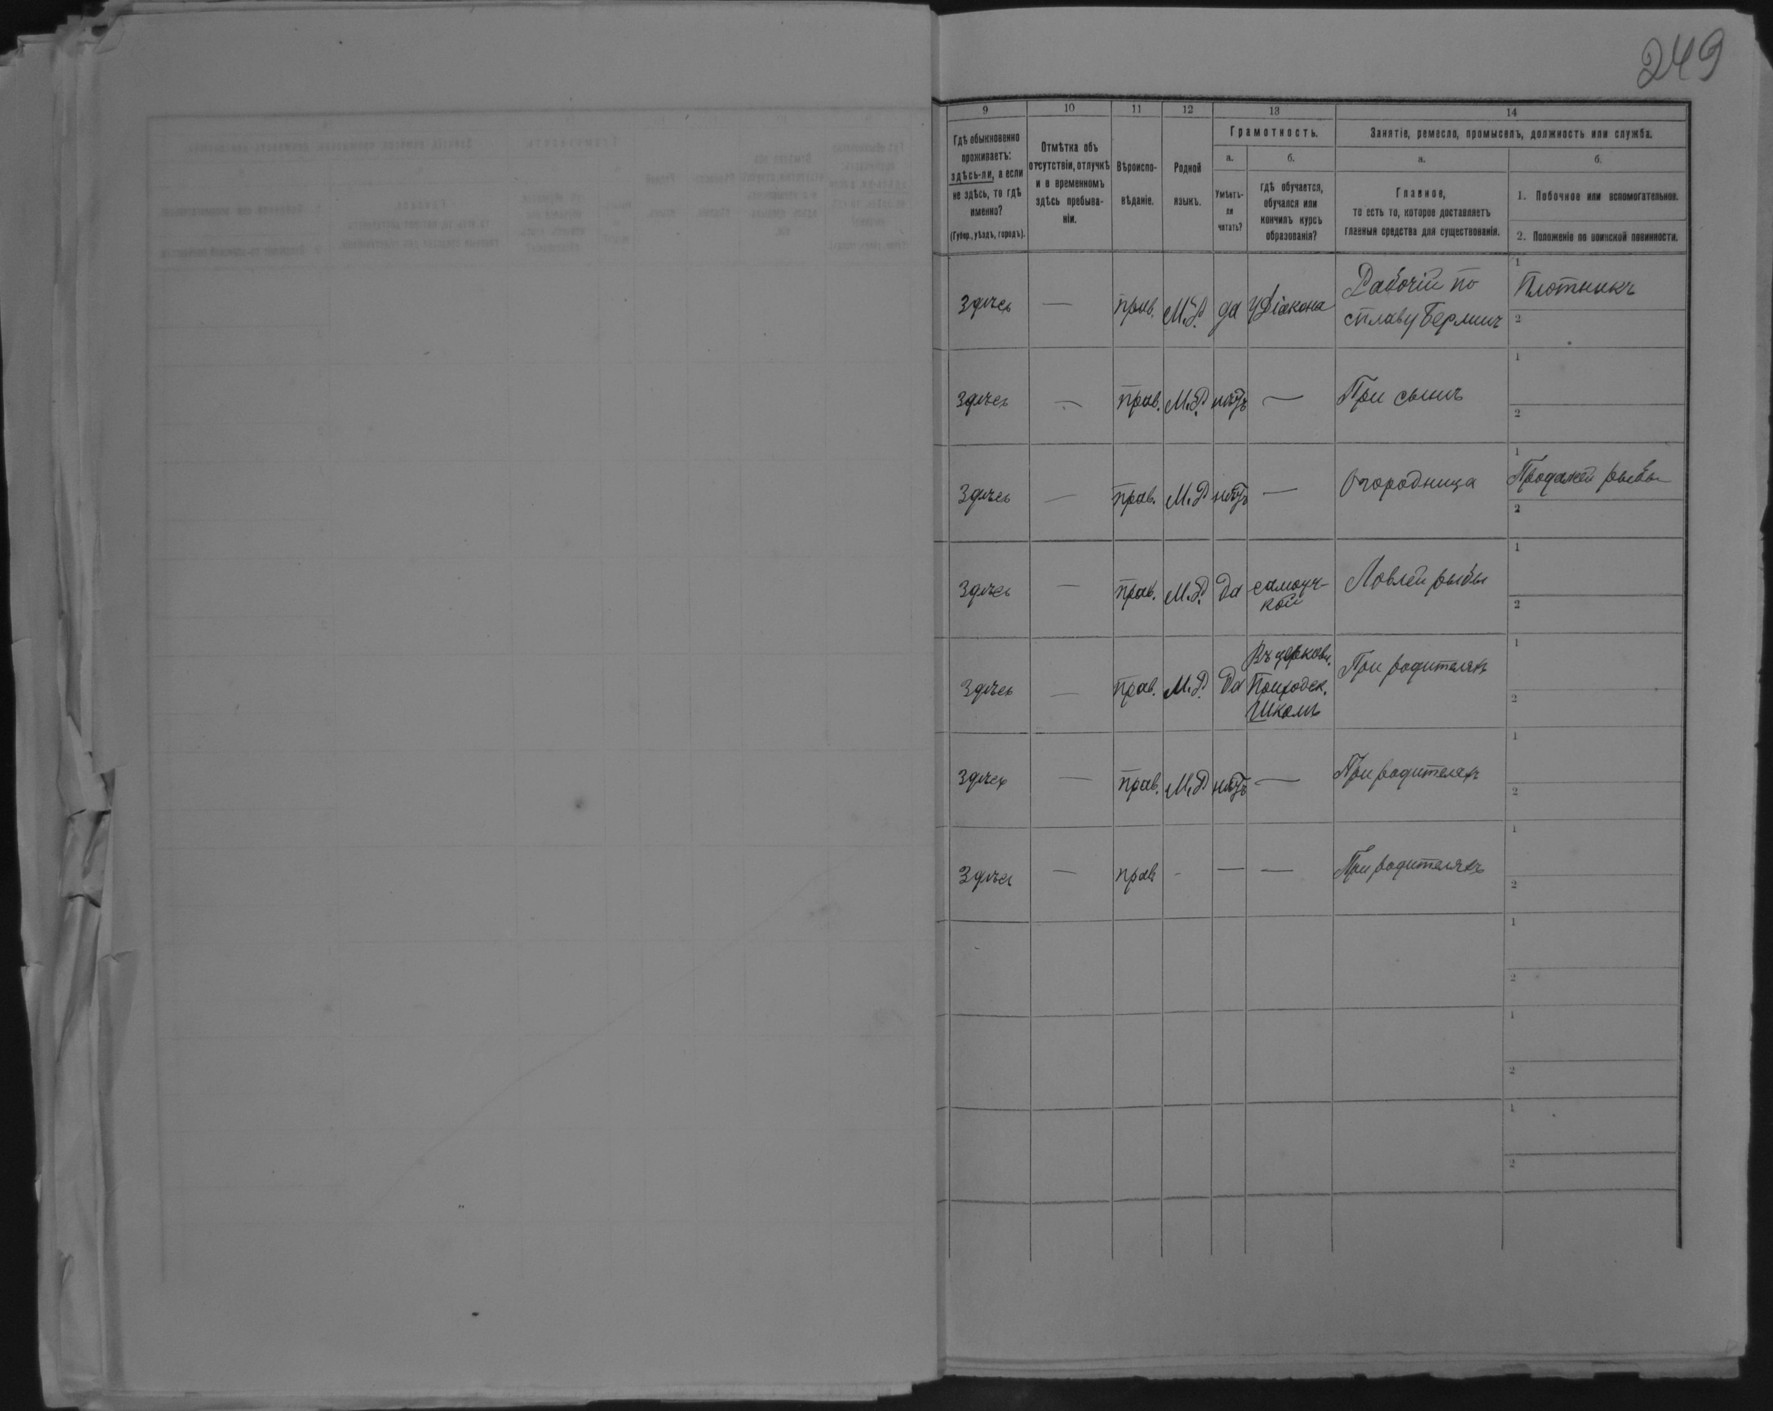 249
9 10 11 12 13 14
Гдѣ обыкновенно
проживаетъ:
здѣсь-ли, а если
не здѣсь, то гдѣ
именно?
(Губер., уѣздъ, городъ).
Отмѣтка объ
отсутствіи, отлучкѣ
и о временномъ
здѣсь пребыва-
ніи.
Вѣроиспо-
вѣданіе.
Родной
языкъ.
Грамотность.
а.
Умѣетъ-
ли
читать?
б.
гдѣ обучается,
обучался или
кончилъ курсъ
образованія?
Занятіе, ремесло, промыселъ, должность или служба.
а.
Главное,
то есть то, которое доставляетъ
главныя средства для существованія.
б.
1. Побочное или вспомогательное.
2. Положеніе по воинской повинности.
здѣсь — прав. М.Р. да у Діакона
Рабочій по
сплаву
1 Плотникъ
2
здѣсь — прав. М.Р. нѣтъ — При сынѣ
1
2
здѣсь — прав. М.Р. нѣтъ — Огородница
1 Продажей рыбы
2
здѣсь — прав. М.Р. Да самоуч-
кой
Ловлей рыбы
1
2
здѣсь — прав. М.Р. Да
Въ церковн.
Приходск.
Школѣ
При родителяхъ
1
2
здѣсь — прав. М.Р. нѣтъ — При родителяхъ
1
2
здѣсь — прав. - — — При родителяхъ
1
2
1
2
1
2
1
2